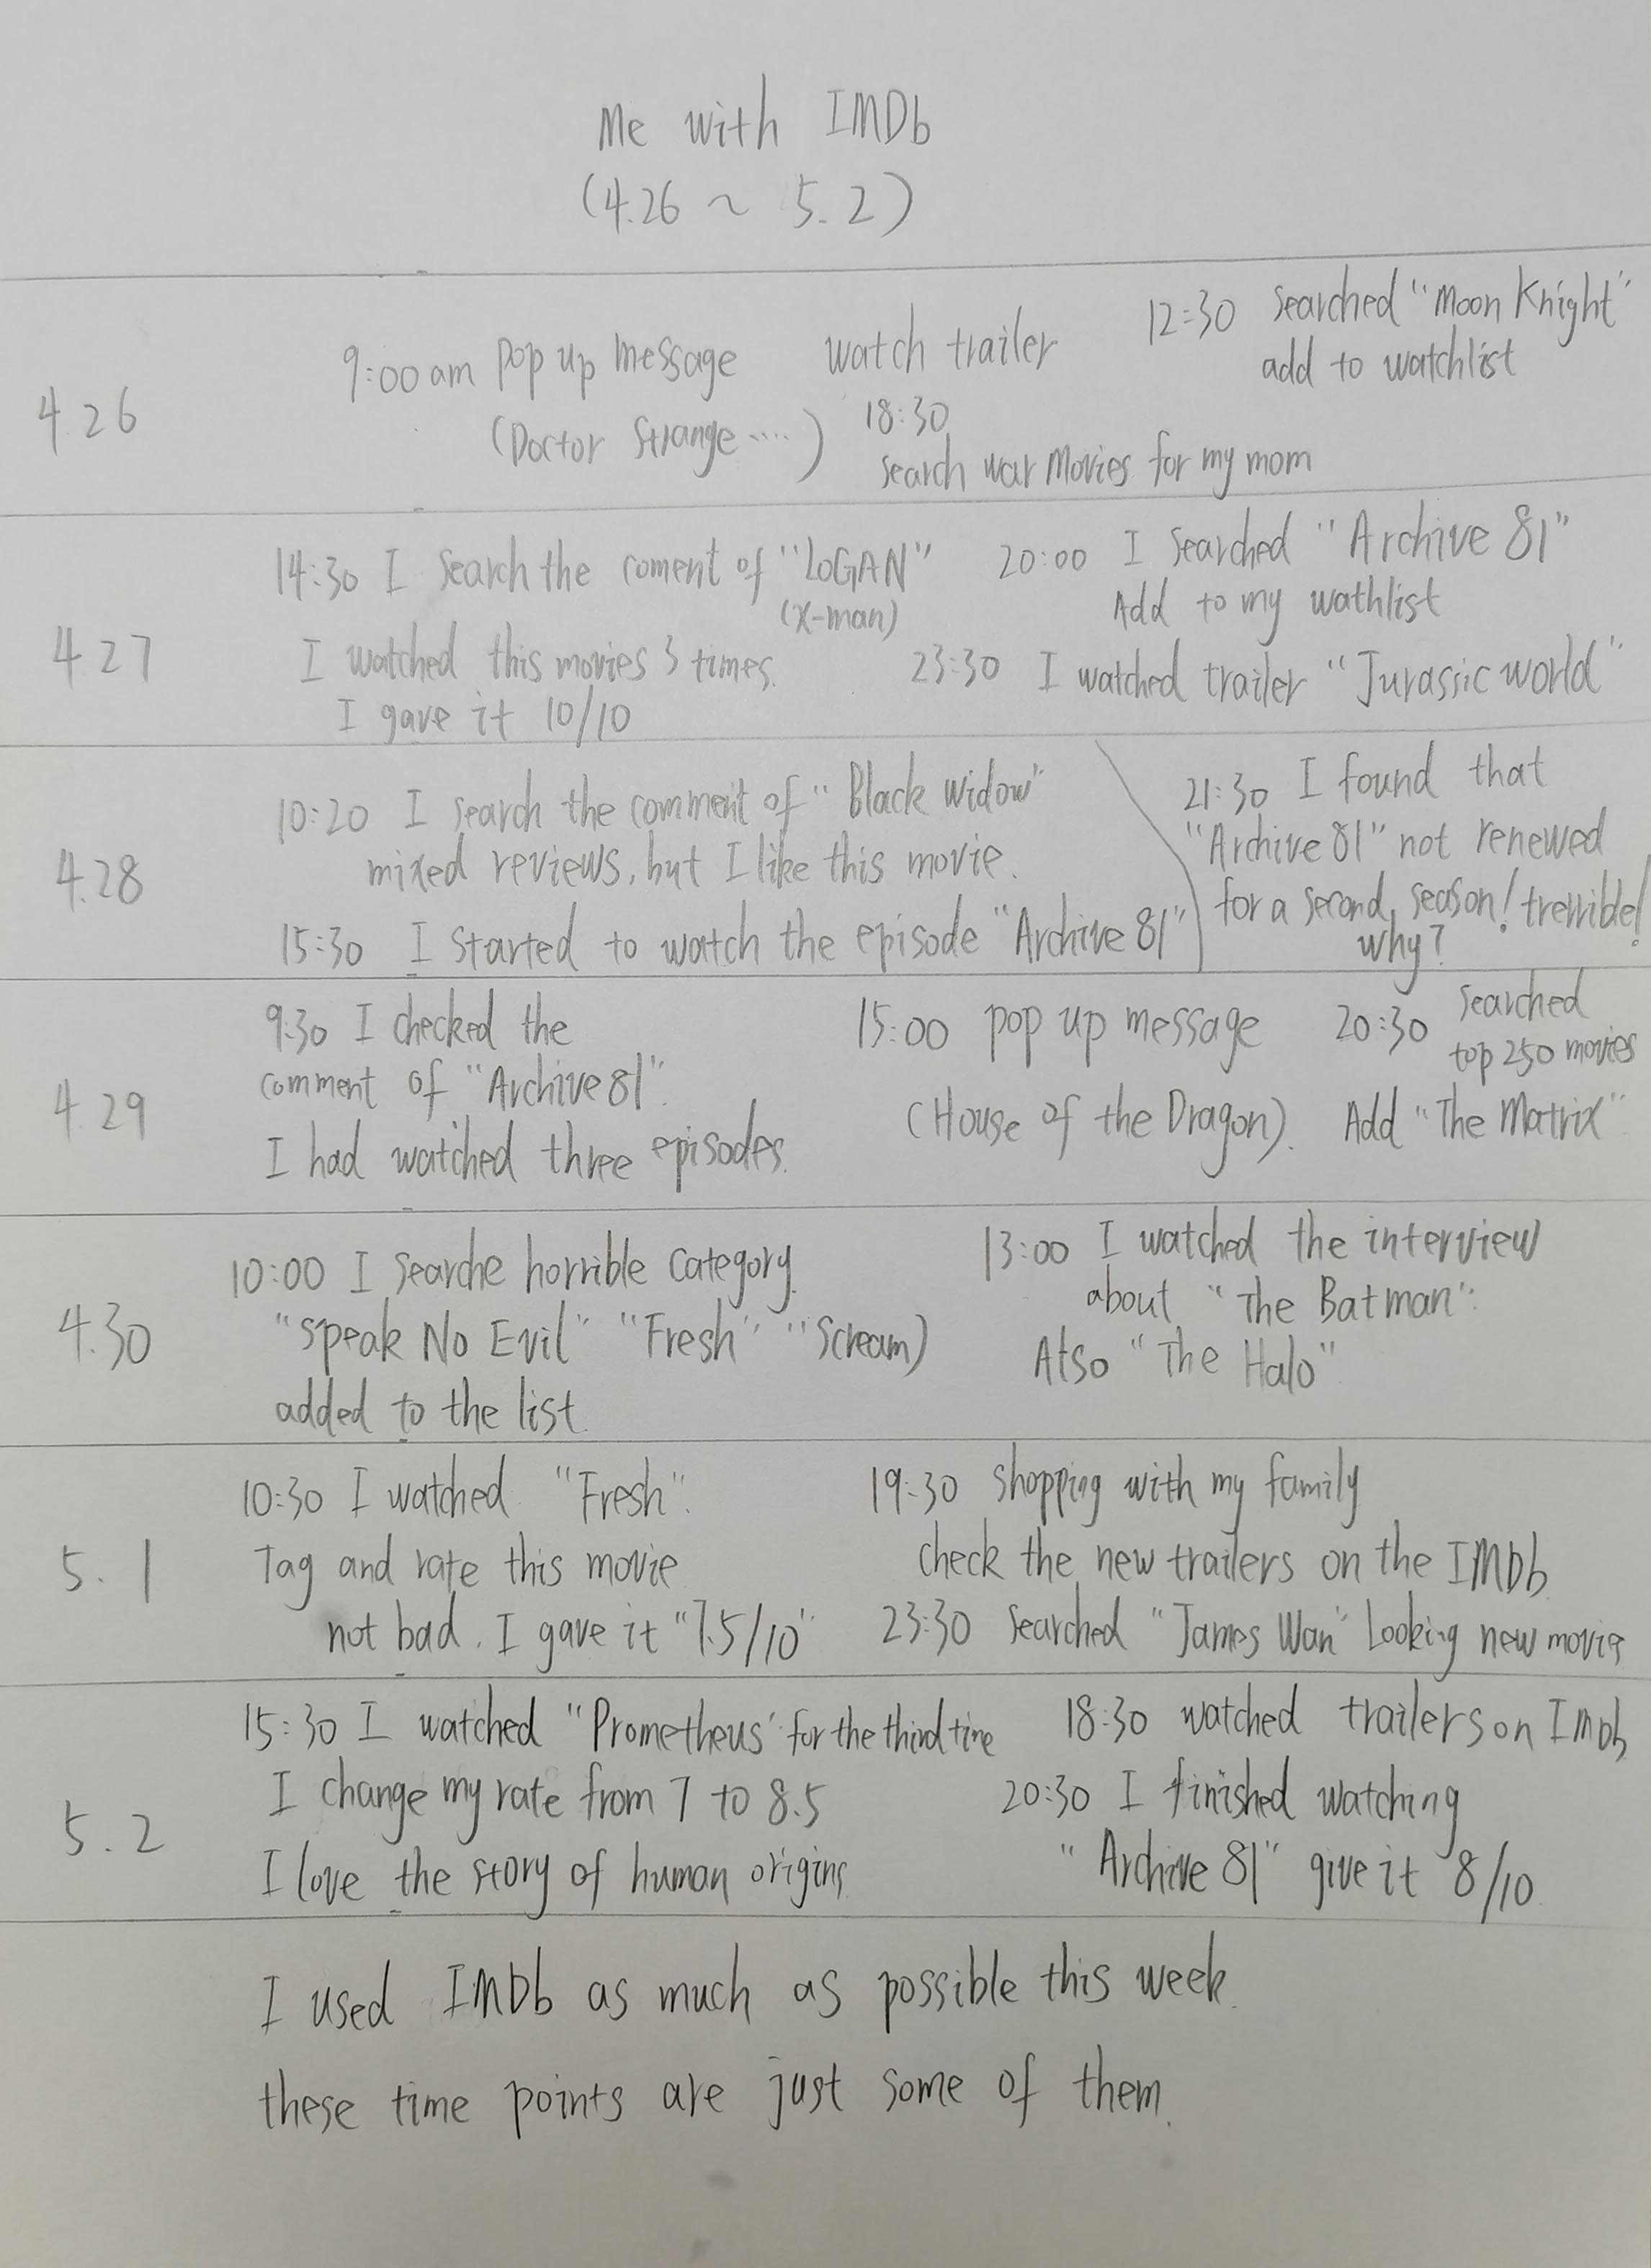 Me with IMDb
(4.26 ~ 5.2)
4.26
9:00am pop up message
(Doctor Strange ....)
watch trailer
18:30
search war movies for my mom
12:30 searched "Moon Knight"
add to watchlist
4.27
14:30 I search the coment of "LOGAN"
(X-man)
I watched this movies 3 times.
I gave it 10/10
20:00 I searched "Archive 81"
Add to my wathlist
23:30 I watched trailer "Jurassic world"
4.28
10:20 I search the comment of "Black Widow"
mixed reviews, but I like this movie.
15:30 I started to watch the episode "Archive 81"
21:30 I found that
"Archive 81" not renewed
for a second season! trerrible!
why?
4.29
9:30 I checked the
comment of "Archive 81".
I had watched three episodes.
15:00 pop up message
(House of the Dragon).
20:30 searched
top 250 movies
Add "The Matrix"
4.30
10:00 I searche horrible category.
"Speak No Evil" "Fresh" "Scream)
added to the list.
13:00 I watched the interview
about "The Batman".
Also "The Halo"
5.1
10:30 I watched "Fresh".
Tag and rate this movie
not bad. I gave it "7.5/10"
19:30 shopping with my family
check the new trailers on the IMDb.
23:30 searched "James Wan" Looking new movies
5.2
15:30 I watched "Prometheus" for the third time
I change my rate from 7 to 8.5
I love the story of human origins
18:30 watched trailers on IMDb
20:30 I finished watching
"Archive 81" give it 8/10
I used IMDb as much as possible this week.
these time points are just some of them.